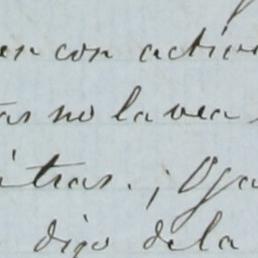 er con activi
as no la vea
itras. ¡Oja
digo de la